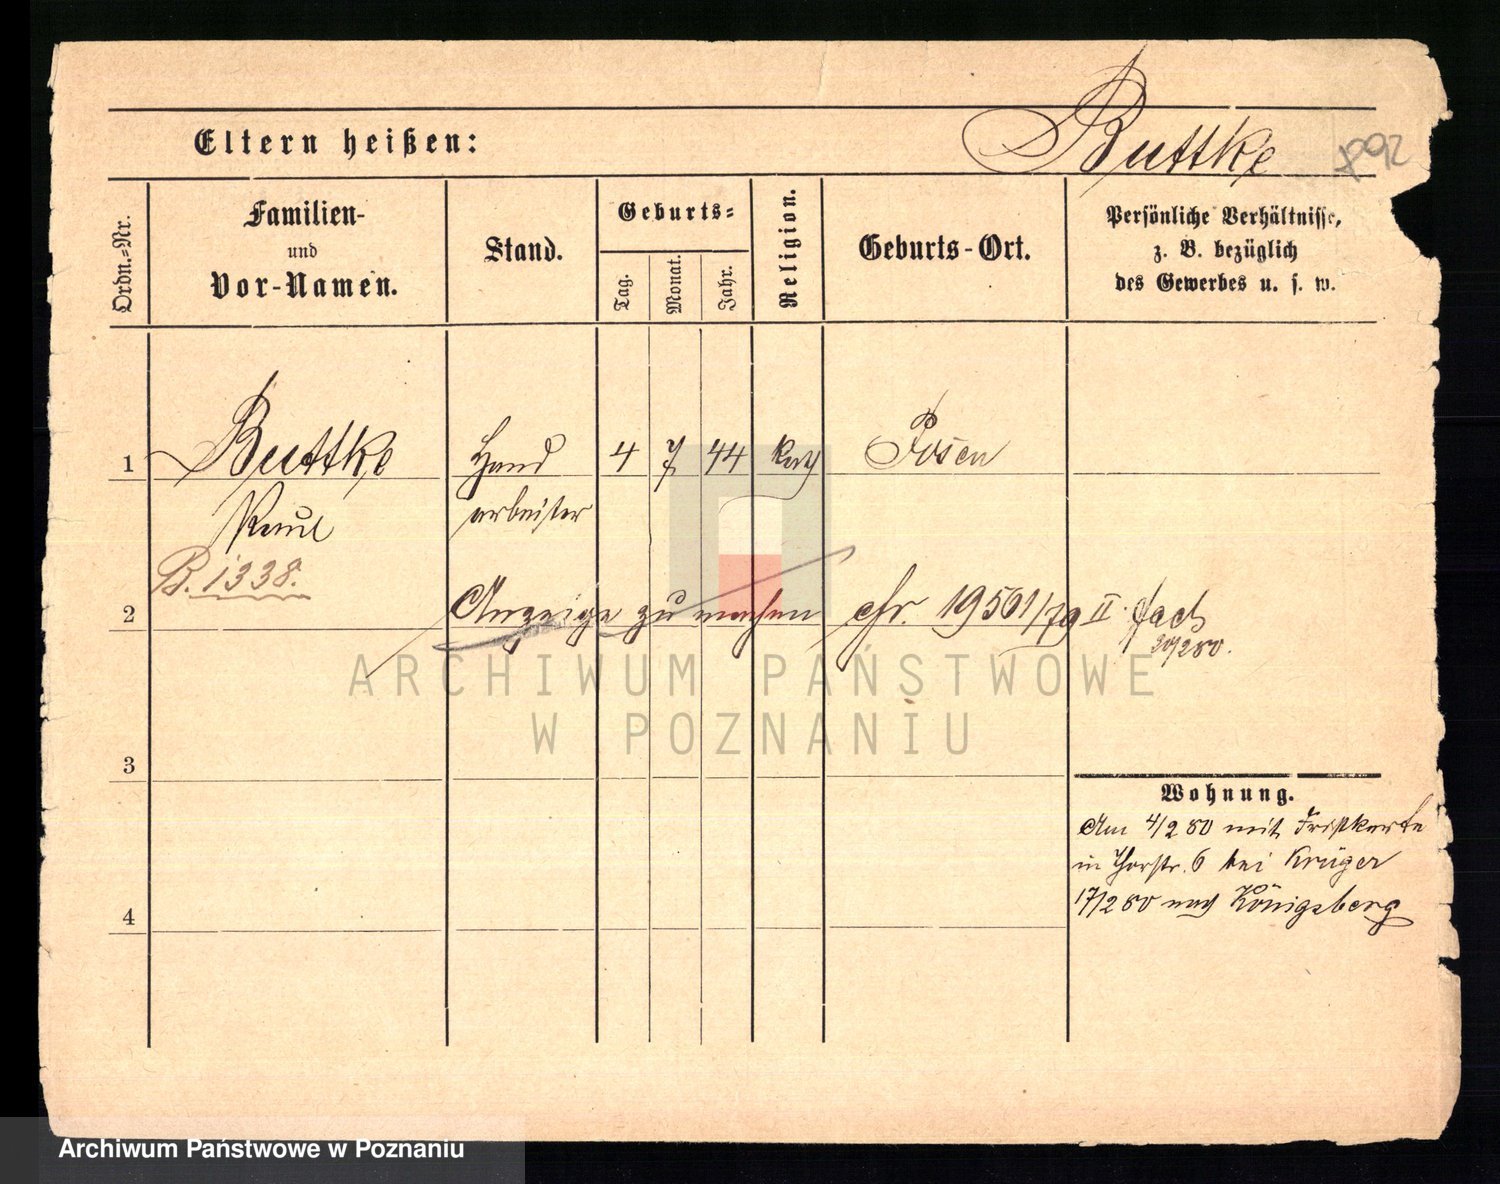 Buttke
Eltern heißen:
Ordn.-Nr.
Familien-
und
Vor-Namen.
Stand.
Geburts-
Tag.
Monat.
Jahr.
Religion.
Geburts-Ort.
Persönliche Verhältnisse,
z. B. bezüglich
des Gewerbes u. s. w.
1 Buttke Hand 4 7 44 kath Posen
Paul arbeiter
B. 1338.
2 Anzeige zu machen cfr. 19501/79 II. Fach
ARCHIWUM PAŃSTWOWE
W POZNANIU
3
Wohnung.
Am 4/2 80 mit
in Thorstr. 6 bei Krüger
17/2 80 nach Königsberg
4
Archiwum Państwowe w Poznaniu